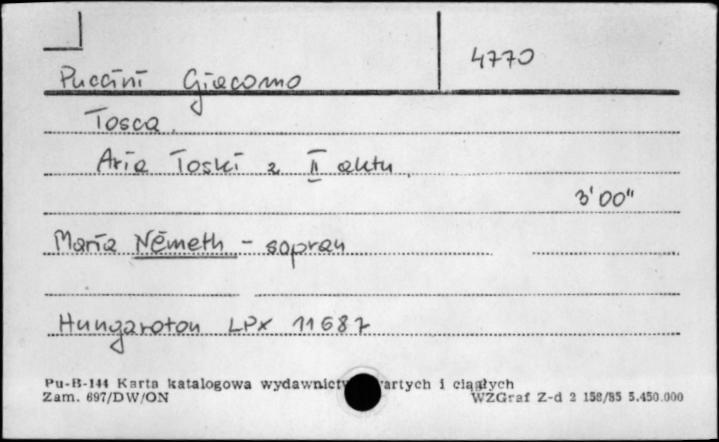 4770
Puccini Giacomo
Tosca.
Aria Toski z II aktu.
3'00"
Maria Németh - sopran
Hungaroton LPX 11687
Pu-B-144 Karta katalogowa wydawnictw i ciągłych
Zam. 697/DW/ON WZGraf Z-d 2 158/85 5.450.000